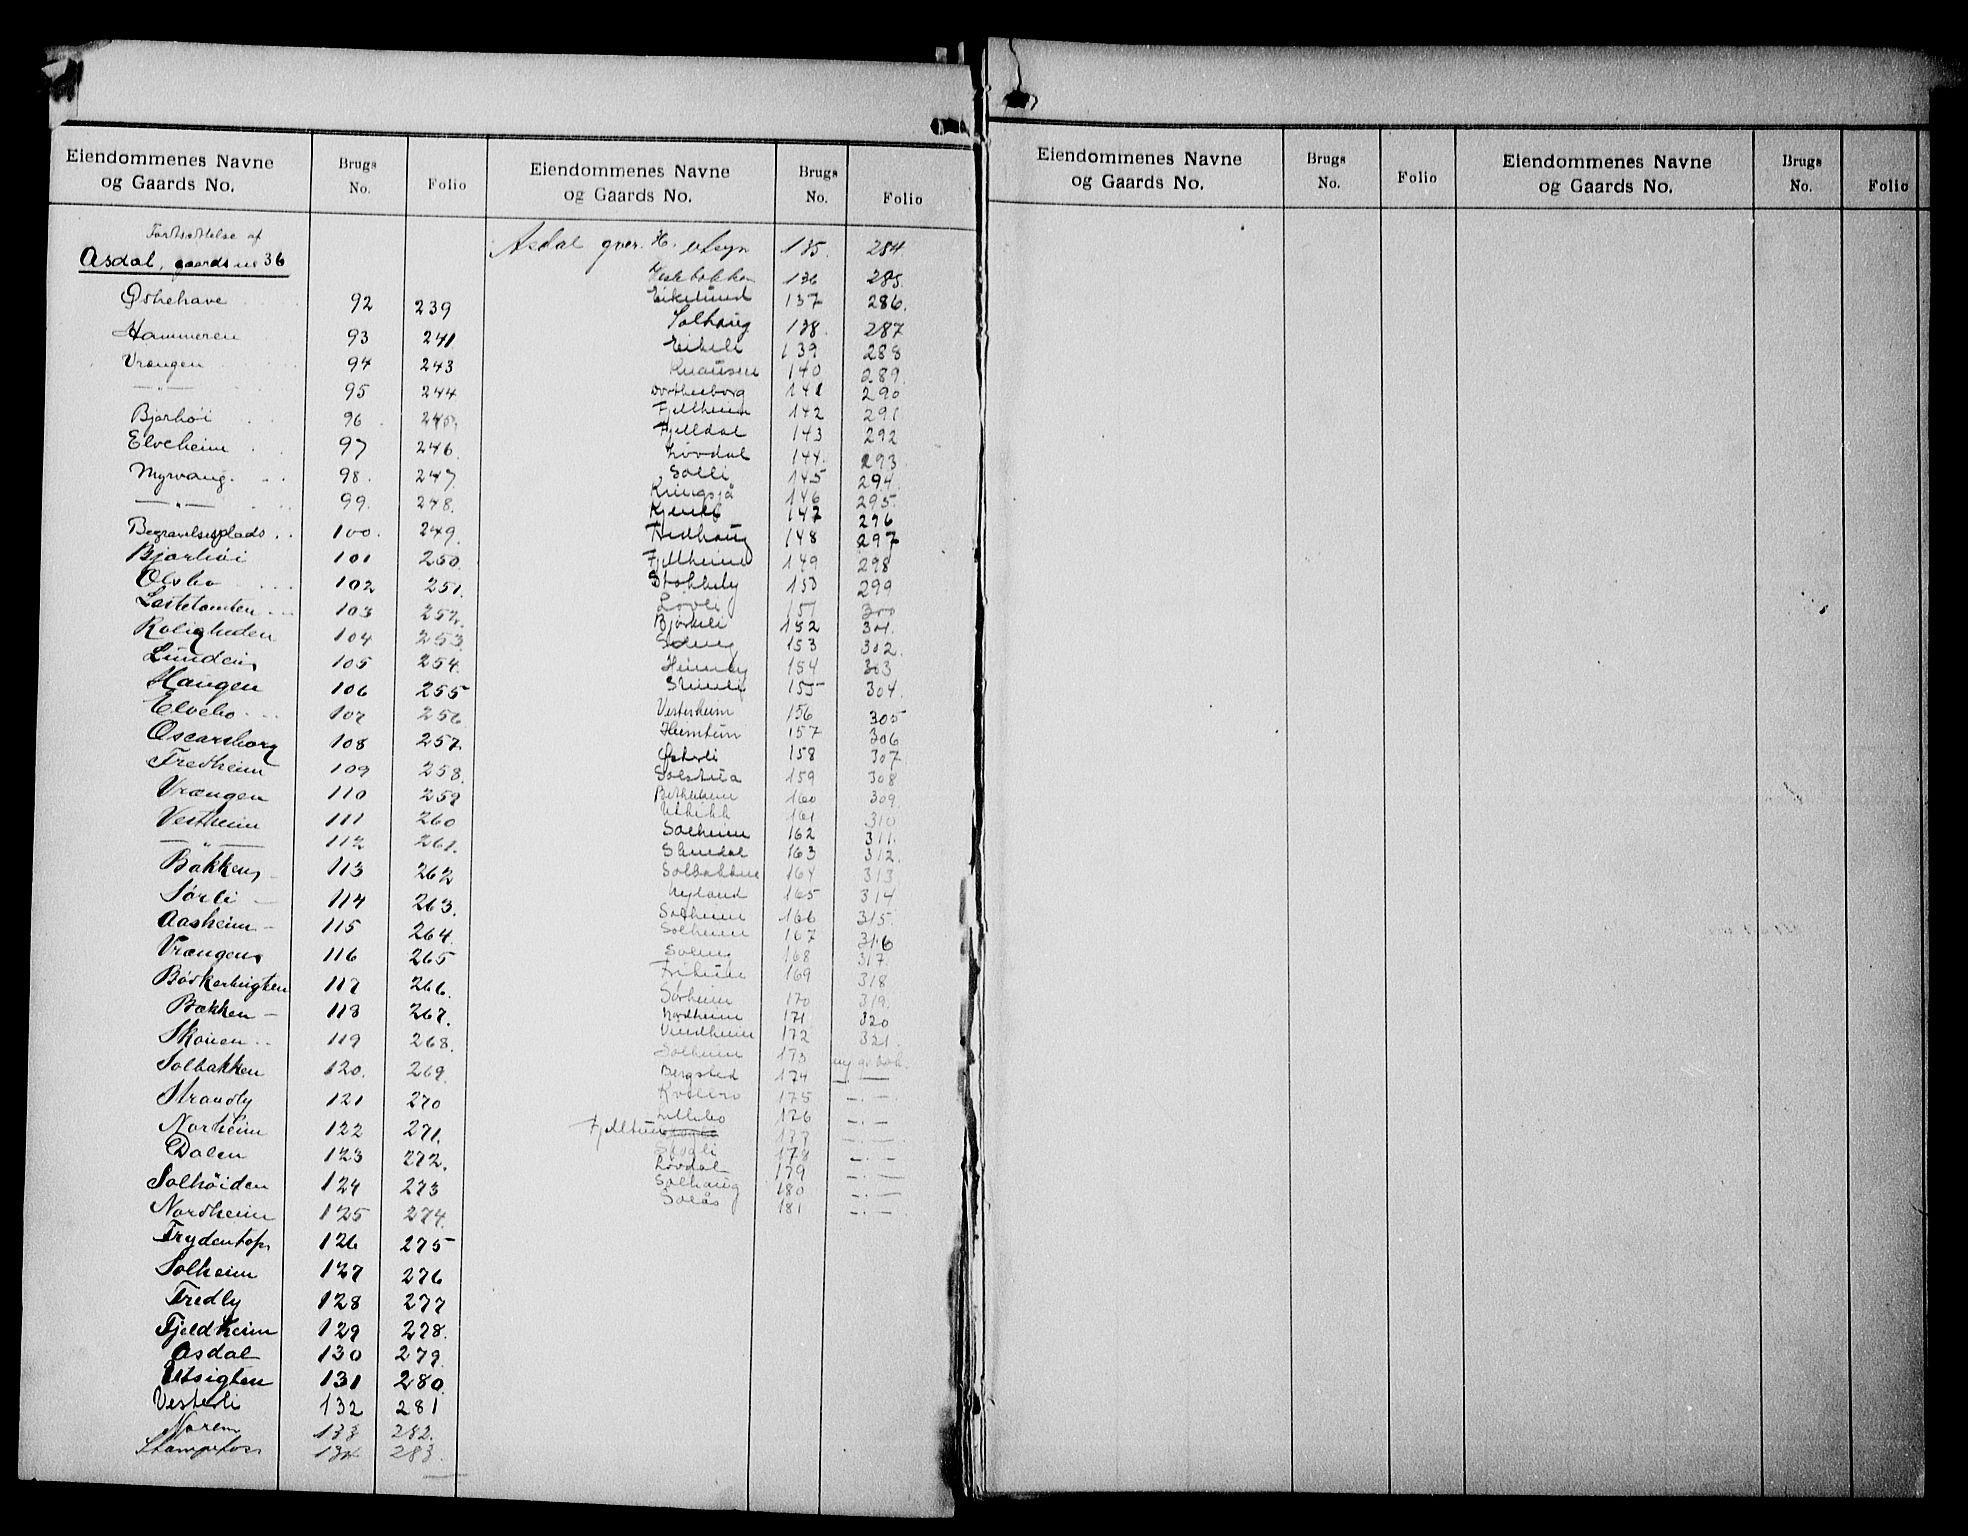 Eiendommenes Navne og Gaards No. Brugs No. Folio
Fortsettelse af
Asdal, gaards no 36
Østrehave 92 239
Hammeren 93 241
Vrængen 94 243
—„— 95 244
Bjørhøi 96 245.
Elveheim 97 246.
Myrvang. 98. 247.
—„— 99. 248.
Begravelsesplads 100. 249.
Bjørhøi 101 250.
Olsbo 102 251.
Lastetomten 103 252.
Roligheden 104 253.
Lunden 105 254.
Haugen 106 255
Elvebo 107 256
Oscarsborg 108 257.
Fredheim 109 258.
Vrængen 110 259
Vestheim 111 260
—„— 112 261.
Bakken 113 262
Sørli 114 263.
Aasheim 115 264.
Vrængen 116 265
Bødkerhugten 117 266.
Bækken 118 267.
Skauen 119 268.
Solbakken 120. 269.
Strandly 121 270
Norheim 122 271.
Dalen 123 272.
Solhøiden 124 273
Nordheim 125 274.
Frydentop 126 275
Solheim 127 276
Fredly 128 277
Fjeldheim 129 278.
Asdal 130 279.
Utsigten 131 280.
Vesterli 132 281
Norem 133 282.
Stampefoss 134 283.
Eiendommenes Navne og Gaards No. Brugs No. Folio
Asdal gnr. 36. Utsyn 135. 284
136 285
Eikelund 137 286.
Solhaug 138. 287
Eikeli 139 288
Knausen 140 289.
Dorthesborg 141 290
Fjellheim 142 291
Fjelldal 143 292
Løvdal 144. 293
Solli 145 294.
Kringsjå 146 295.
147 296
Fredhaug 148 297
Fjellheim 149 298
Stokkely 150 299
Løvli 151 300
Bjørkeli 152 301.
Soleng 153 302.
Heimly 154 303
155 304.
Vesterheim 156 305
Heimtun 157 306
Østerli 158 307
Solstua 159 308
Betheheim 160 309
Utkikk 161 310
Solheim 162 311.
163 312.
Solbakken 164 313
Nyland 165 314
Solheim 166 315
Solheim 167 316
Soleng 168 317.
169 318
Sørheim 170 319.
Nordheim 171 320
Vindheim 172 321.
Solheim 173 ny gr. bok.
Bergsted 174 —.—
175 —.—
Lillebo 176 —.—
Fjelltun 177 —.—
178 —.—
Løvdal 179 —.—
Solhaug 180 —.—
Solås 181 —.—
Eiendommenes Navne og Gaards No. Brugs No. Folio
Eiendommenes Navne og Gaards No. Brugs No. Folio